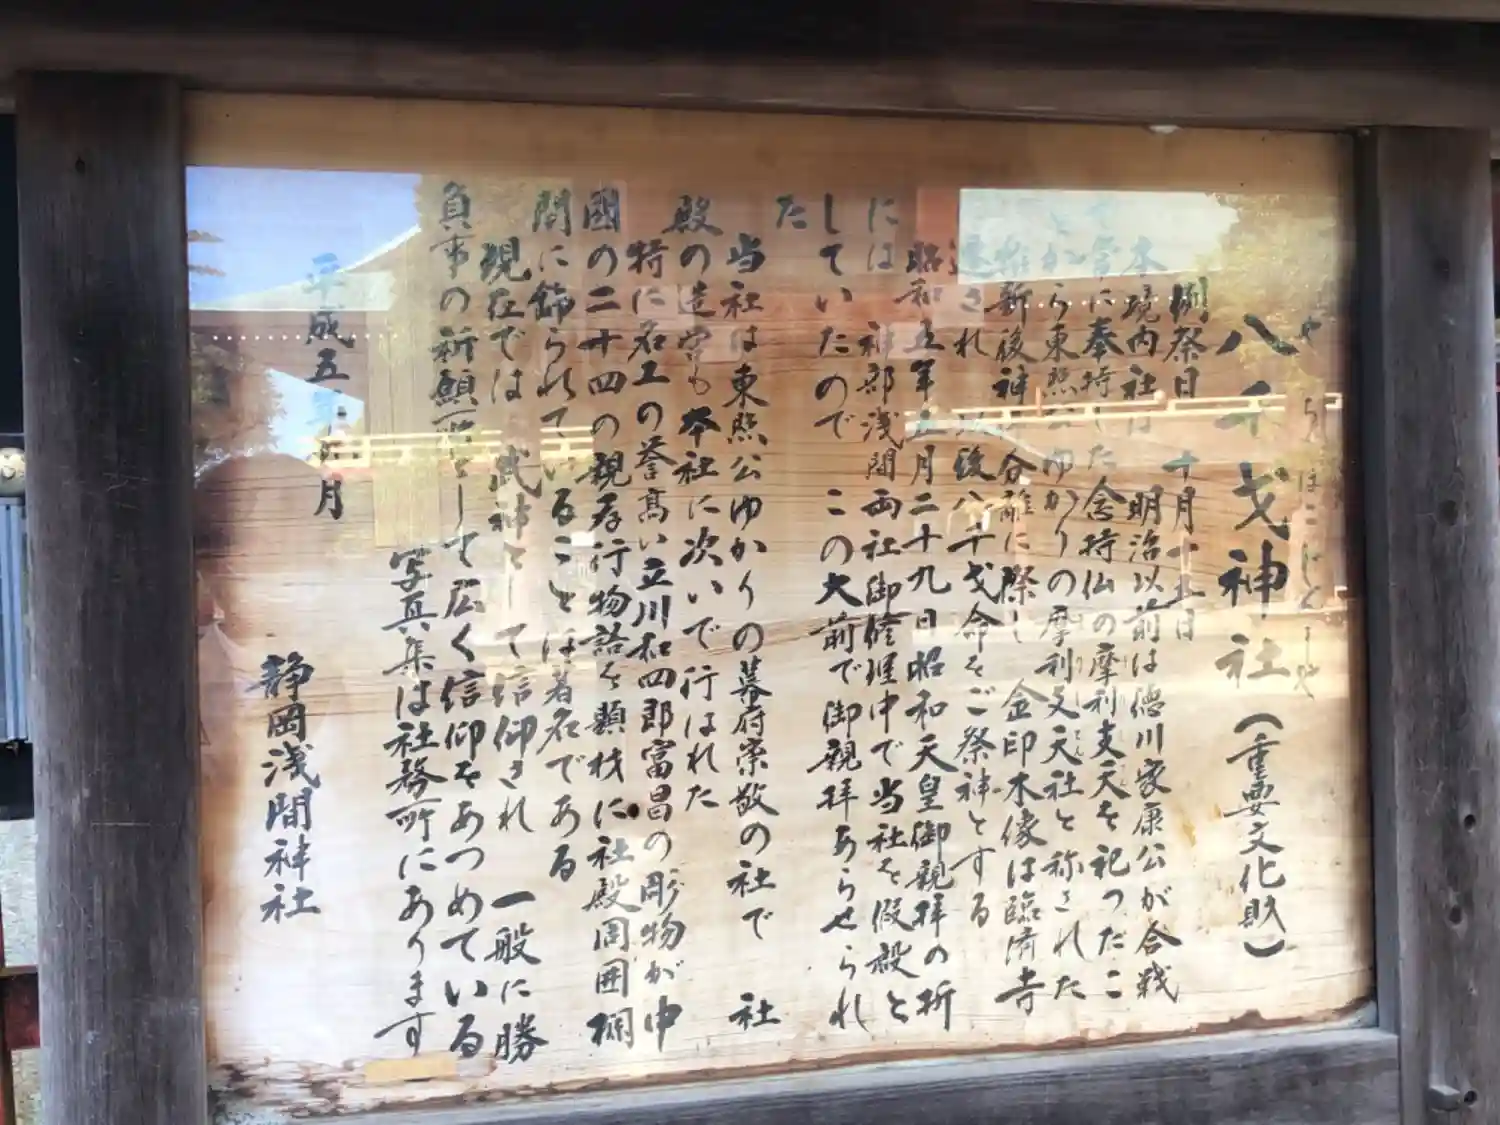 やちほこじんじゃ
八千戈神社（重要文化財）
例祭日 十月十五日
本境内社は 明治以前は徳川家康公が合戦
に奉持した念持仏の摩利支天を祀つたこ
とから東照公ゆかりの摩利支天社と称された
維新後神仏分離に際し 金印木像は臨済寺
に遷され 以後八千戈命をご祭神とする
昭和五年五月二十九日昭和天皇御親拝の折
には 神部浅間両社御修理中で当社を假殿と
していたので この大前で御親拝あらせられ
た
当社は東照公ゆかりの幕府崇敬の社で 社
殿の造営も本社に次いで行はれた
特に名工の誉高い立川和四郎富昌の彫物が中
國の二十四の親孝行物語を題材に社殿周囲欄
間に飾られていることは著名である
現在では 武神として信仰され 一般に勝
負事の祈願所として広く信仰をあつめている
写真集は社務所にあります
平成五年 月
静岡浅間神社